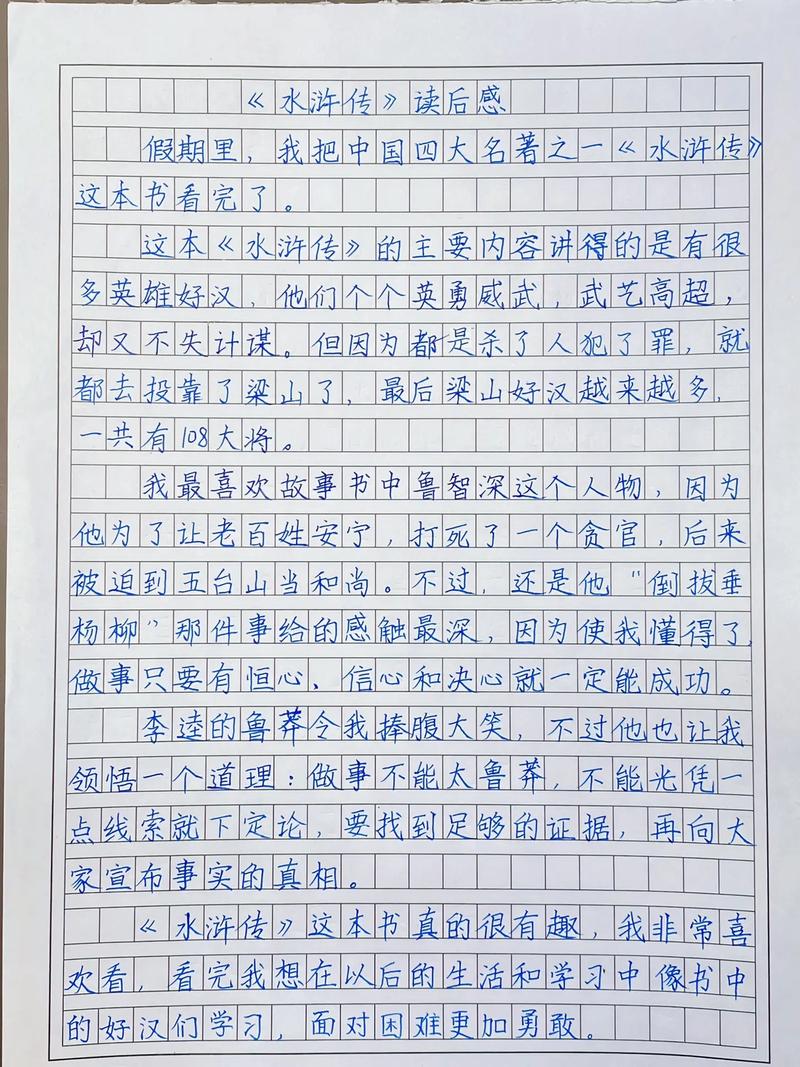 《水浒传》读后感
假期里，我把中国四大名著之一《水浒传》
这本书看完了。
这本《水浒传》的主要内容讲得的是有很
多英雄好汉，他们个个英勇威武，武艺高超，
却又不失计谋。但因为都是杀了人犯了罪，就
都去投靠了梁山了，最后梁山好汉越来越多，
一共有108大将。
我最喜欢故事书中鲁智深这个人物，因为
他为了让老百姓安宁，打死了一个贪官，后来
被迫到五台山当和尚。不过，还是他“倒拔垂
杨柳”那件事给的感触最深，因为使我懂得了，
做事只要有恒心、信心和决心就一定能成功。
李逵的鲁莽令我捧腹大笑，不过他也让我
领悟一个道理：做事不能太鲁莽，不能光凭一
点线索就下定论，要找到足够的证据，再向大
家宣布事实的真相。
《水浒传》这本书真的很有趣，我非常喜
欢看，看完我想在以后的生活和学习中像书中
的好汉们学习，面对困难更加勇敢。